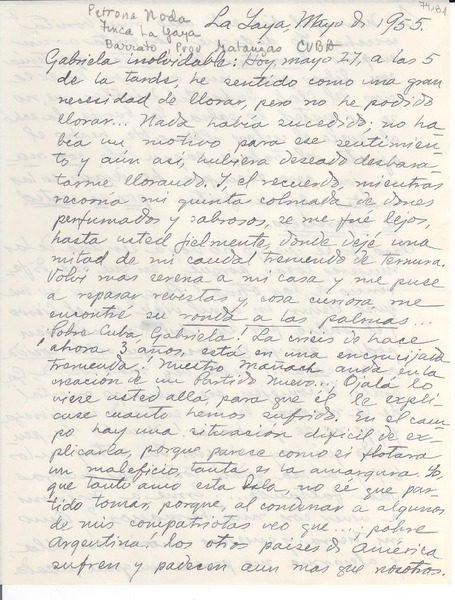 74181
Petrona Noda
Finca La Yaya
Barrato, Prov Matanzas CUBA
La Yaya, Mayo de 1955.
Gabriela inolvidable: Hoy, mayo 27, a las 5
de la tarde, he sentido como una gran
necesidad de llorar, pero no he podido
llorar... Nada había sucedido; no ha-
bía un motivo para ese sentimien-
to y aún así, hubiera deseado desbara-
tarme llorando. Y el recuerdo, mientras
recorría mi quinta colmada de dones
perfumados y sabrosos, se me fué lejos,
hasta usted fielmente, donde dejé una
mitad de mi caudal tremendo de ternura.
Volví mas serena a mi casa y me puse
a repasar revistas y cosa curiosa me
encontré su ronda a las palmas...
¡Pobre Cuba, Gabriela! La crisis de hace
ahora 3 años, está en una encrucijada
tremenda; Nuestro Mañach anda en la
creación de un Partido Nuevo...; Ojalá lo
viere usted allá, para que él le expli-
case cuanto hemos sufrido. En el cam
po hay una situación difícil de ex-
plicarla, porque parece como si flotara
un maleficio, tanta es la amargura. Yo,
que tanto amo esta Isla, no sé que par-
tido tomar, porque, al condenar a algunos
de mis compatriotas veo que...; pobre
Argentina! Los otros paises de América
sufren y padecen aun mas que nosotros.